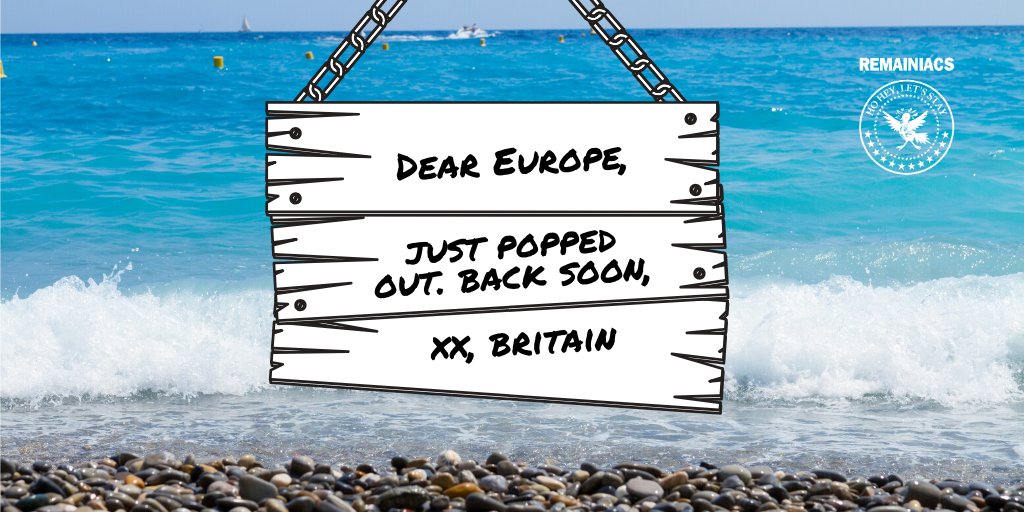 REMAINIACS
HO HEY, LET'S STAY
DEAR EUROPE,
JUST POPPED
OUT. BACK SOON,
XX, BRITAIN